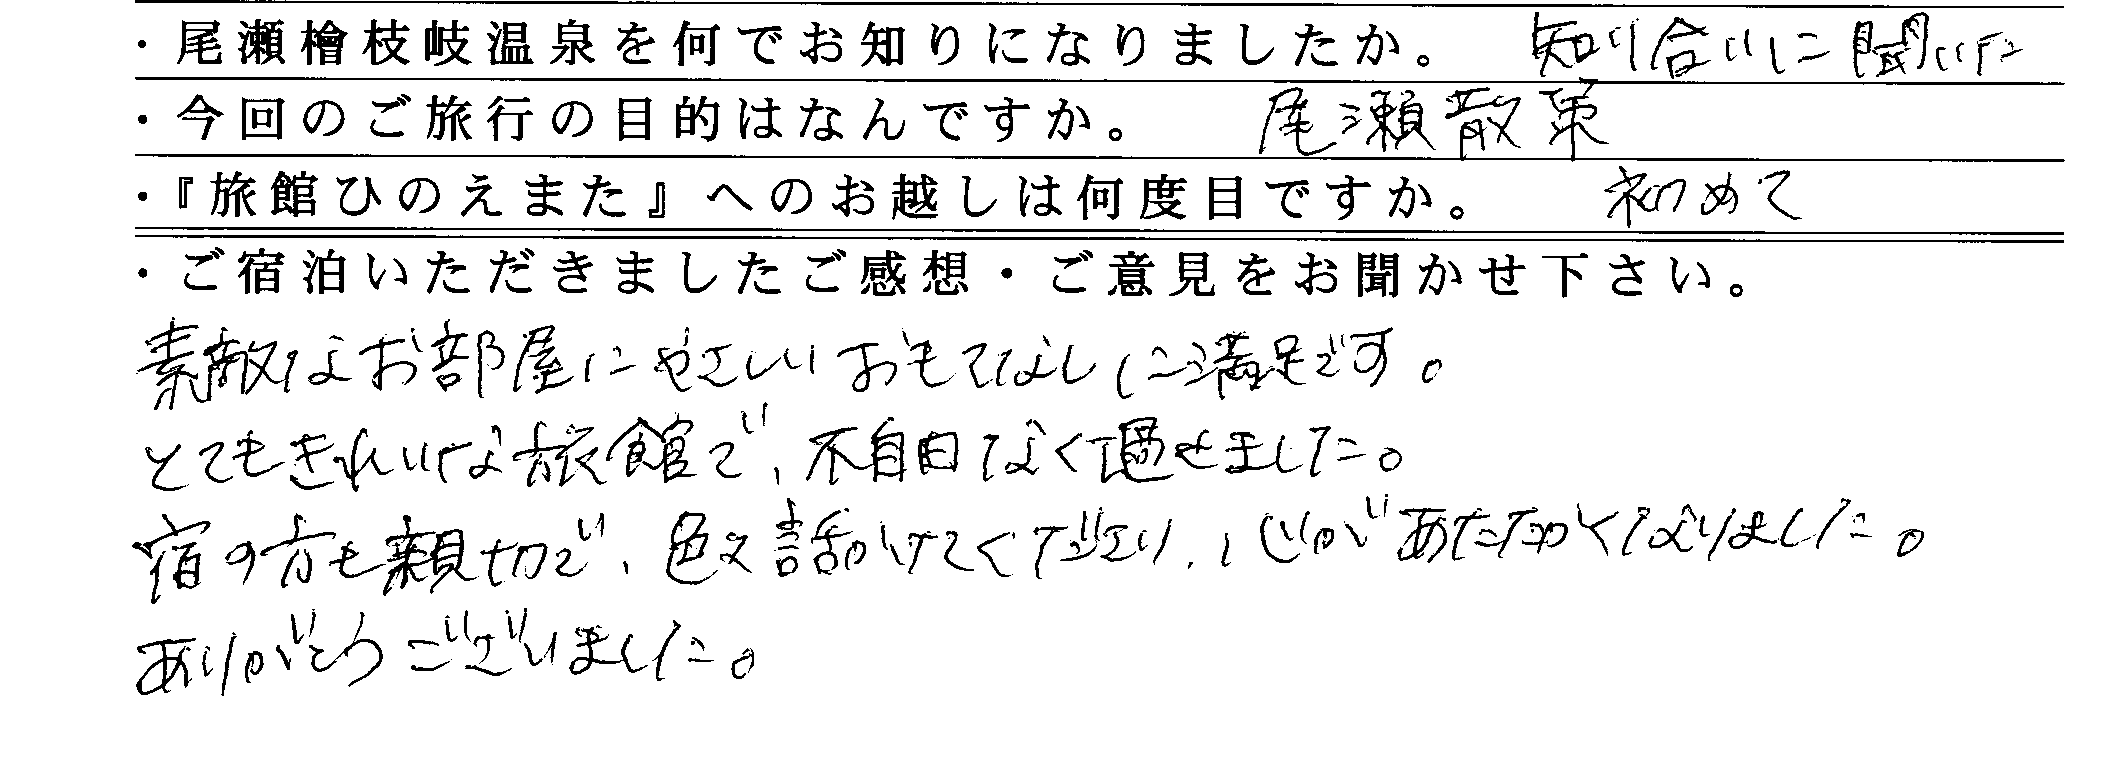 ・尾瀬檜枝岐温泉を何でお知りになりましたか。 知り合いに聞いた
・今回のご旅行の目的はなんですか。 尾瀬散策
・『旅館ひのえまた』へのお越しは何度目ですか。 初めて
・ご宿泊いただきましたご感想・ご意見をお聞かせ下さい。
素敵なお部屋にやさしいおもてなしに満足です。
とてもきれいな旅館で、不自由なく過せました。
宿の方も親切で、色々話かけてくださり、心があたたかくなりました。
ありがとうございました。